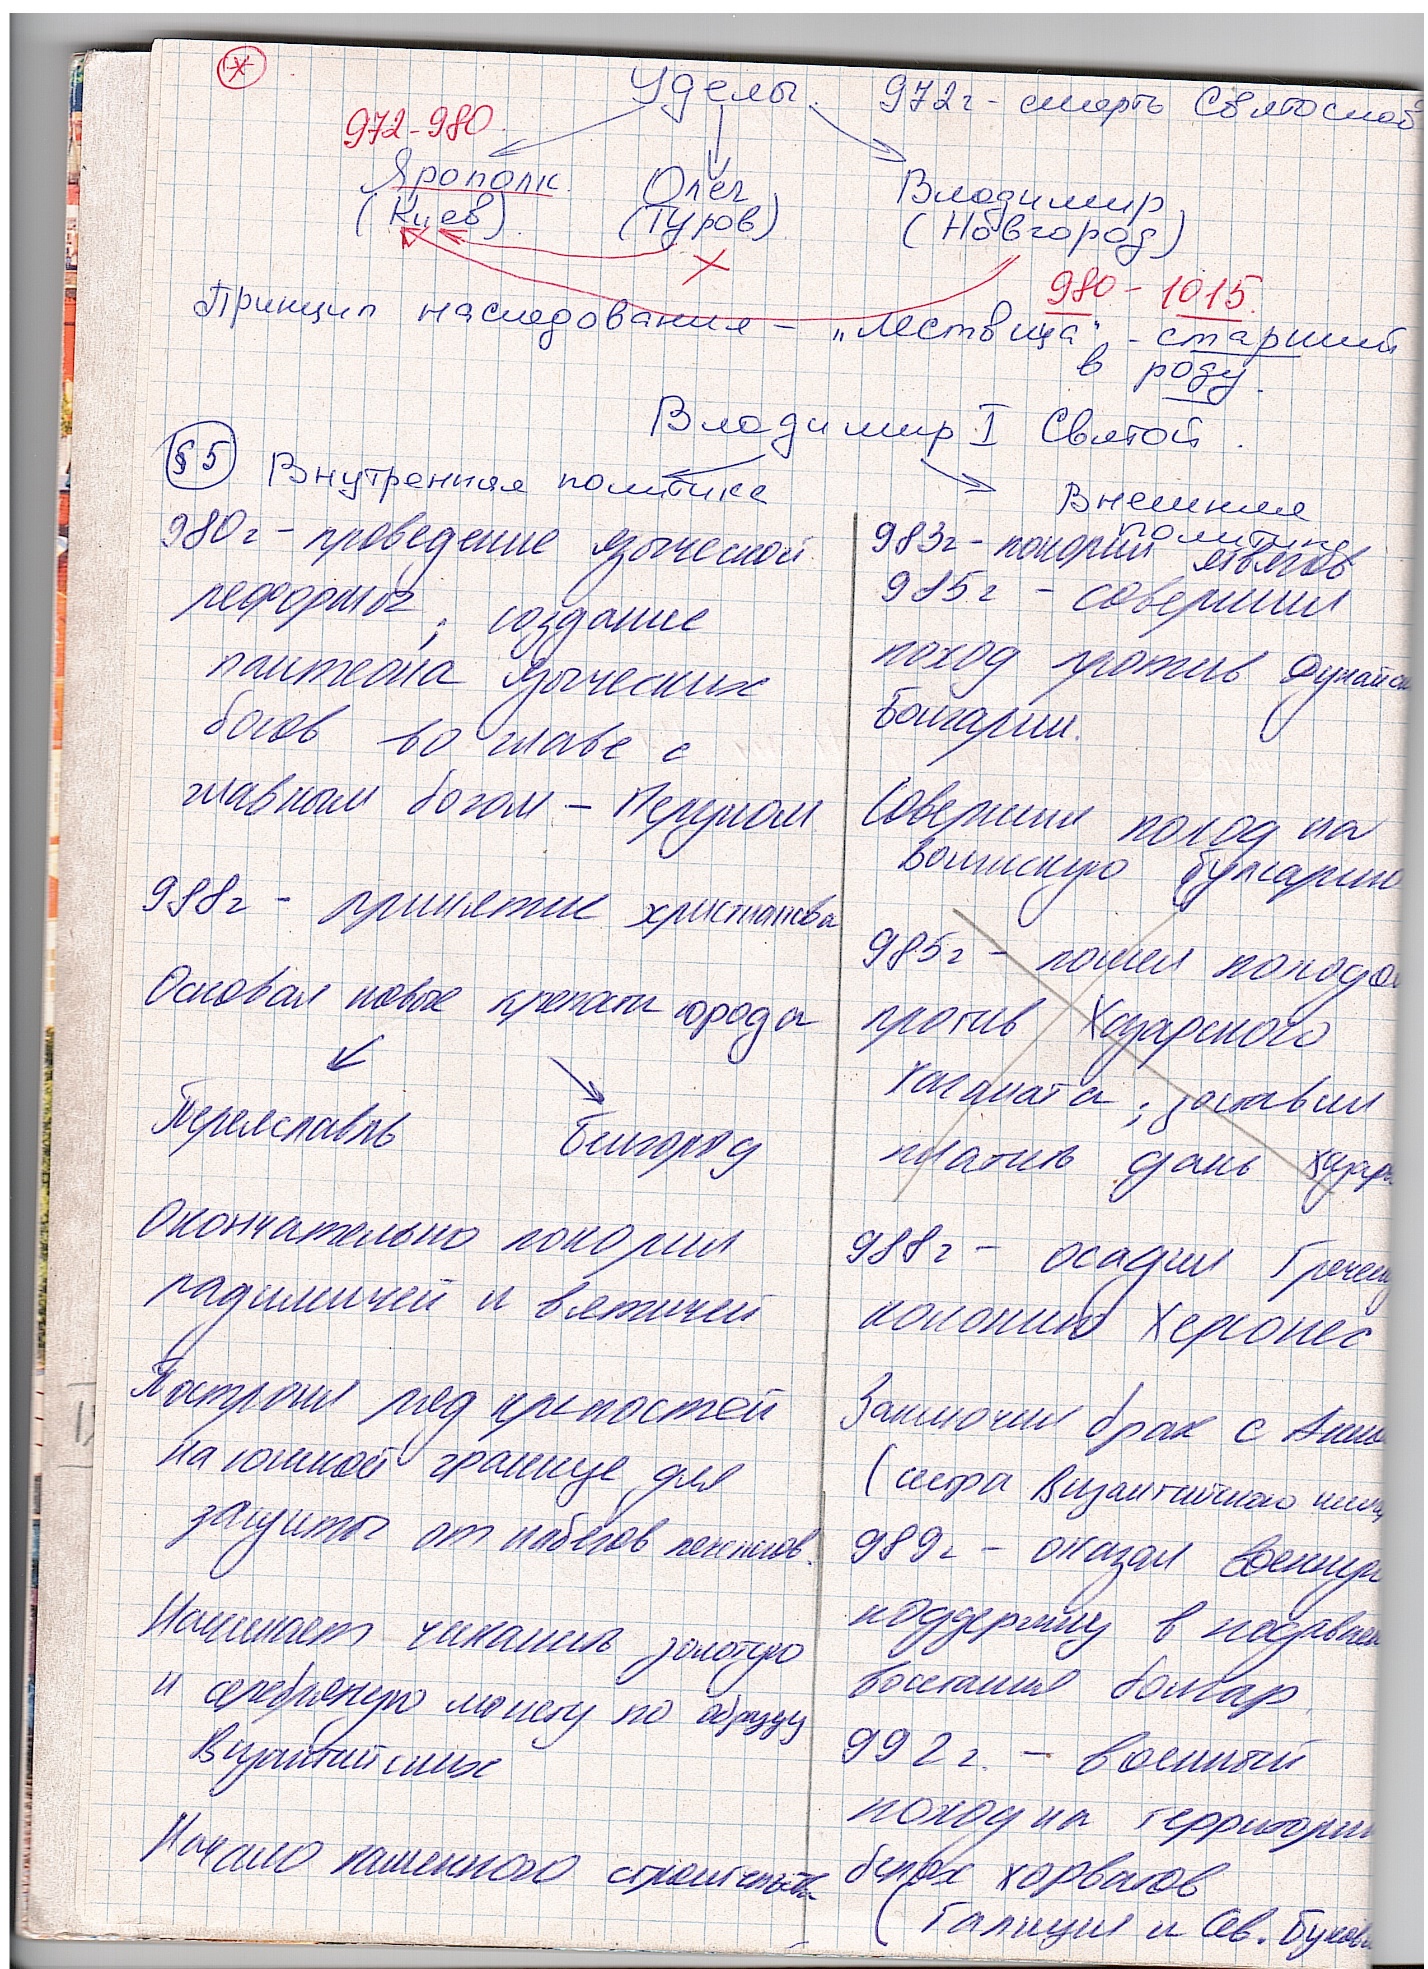 Уделы. 972г - смерть Святослав
972-980
Ярополк Олег Владимир
(Киев). (Туров) (Новгород)
980 - 1015.
Принцип наследования - „лествица“ - старший
в роду.
Владимир I Святой.
§5 Внутренняя политика
Внешняя
политика
980г - проведение языческой
реформы; создание
пантеона языческих
богов во главе с
главным богом - Перуном
988г - принятие христианства
Основал новые крепости города
Переяславль Белгород
Окончательно покорил
радимичей и вятичей
Построил ряд крепостей
на южной границе для
защиты от набегов печенегов.
Начинает чеканить золотую
и серебряную монету по образцу
Византийских
Начало каменного строительства
983г - покорил ятвягов
985г - совершил
поход против Дунайск
Болгарии.
Совершил поход на
Волжскую булгарию
985г - пошел походо
против Хазарского
каганата; заставил
платить дань хазар
988г - осадил Гречес
колонию Херсонес
Заключил брак с Анн
(сестра Византийского импе
989г - оказал военную
поддержку в подавлен
восстания болгар.
992г. - военный
поход на территори
белых хорватов
(Галиция и Сев. Букови